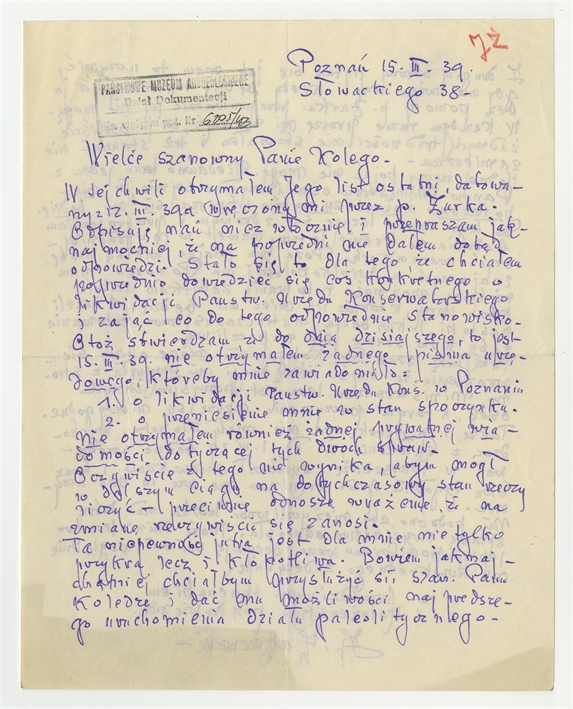 JŻ
Poznań 15. III. 39.
Słowackiego 38 -
PAŃSTWOWE MUZEUM ARCHEOLOGICZNE
Dział Dokumentacji
Nr
Wielce szanowny Panie Kolego -
W tej chwili otrzymałem Jego list ostatni, datowa-
ny 12. III. 39 a wręczony mi przez p. Żurka.
Odpisuję nań niezwłocznie i przepraszam jak-
najmocniej, że na poprzedni nie dałem dotąd
odpowiedzi. Stało się to dla tego, że chciałem
poprzednio dowiedzieć się coś konkretnego o
likwidacji Państw. Urzędu Konserwatorskiego
i zająć co do tego odpowiednie stanowisko -
Otóż stwierdzam że do dnia dzisiajszego, to jest
15. III. 39. nie otrzymałem żadnego pisma urzę-
dowego, któreby mnie zawiadomiało:
1. o likwidacji Państw. Urzędu Kons. w Poznaniu
2. przeniesienie mnie w stan spoczynku.
nie otrzymałem również żadnej prywatnej wia-
domości dotyczącej tych dwóch spraw -
Oczywiście z tego nie wynika, abym mógł
w dalszym ciągu na dotychczasowy stan rzeczy
liczyć - przeciwnie odnoszę wrażenie, że na
zmianę rzeczywiście się zanosi.
Ta niepewność jutra jest dla mnie nie tylko
przykra lecz i kłopotliwa. Bowiem jaknaj-
chętniej chciałbym przysłużyć się szan. Panu
Koledze i dać mu możliwości najprędsze-
go uruchomienia działu paleolitycznego -